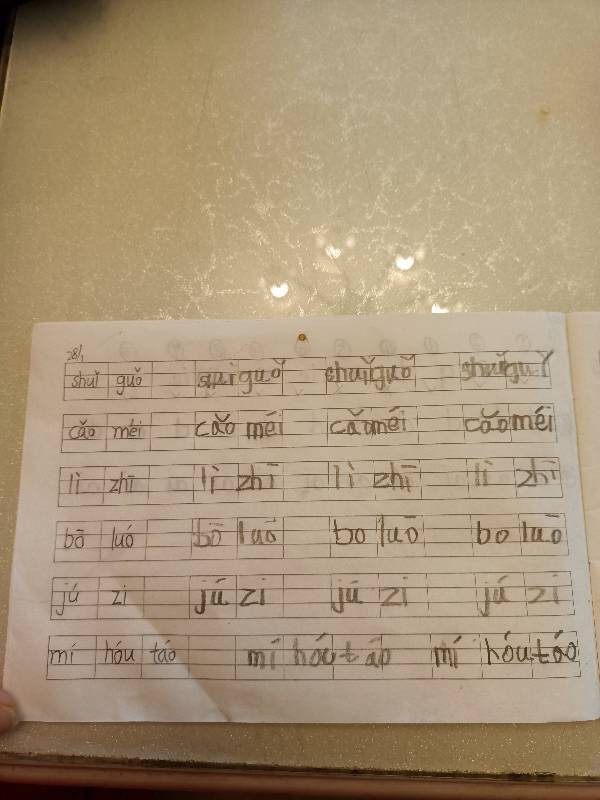 28/1
shuǐ guǒ suiguǒ shuǐguǒ shuǐguǐ
cǎo méi cǎo méi cǎoméi cǎoméi
lì zhī lì zhī lì zhī lì zhī
bō luó bō luō bo luō bo luō
jú zi jú zi jú zi jú zi
mí hóu táo mí hóu táo mí hóu táo